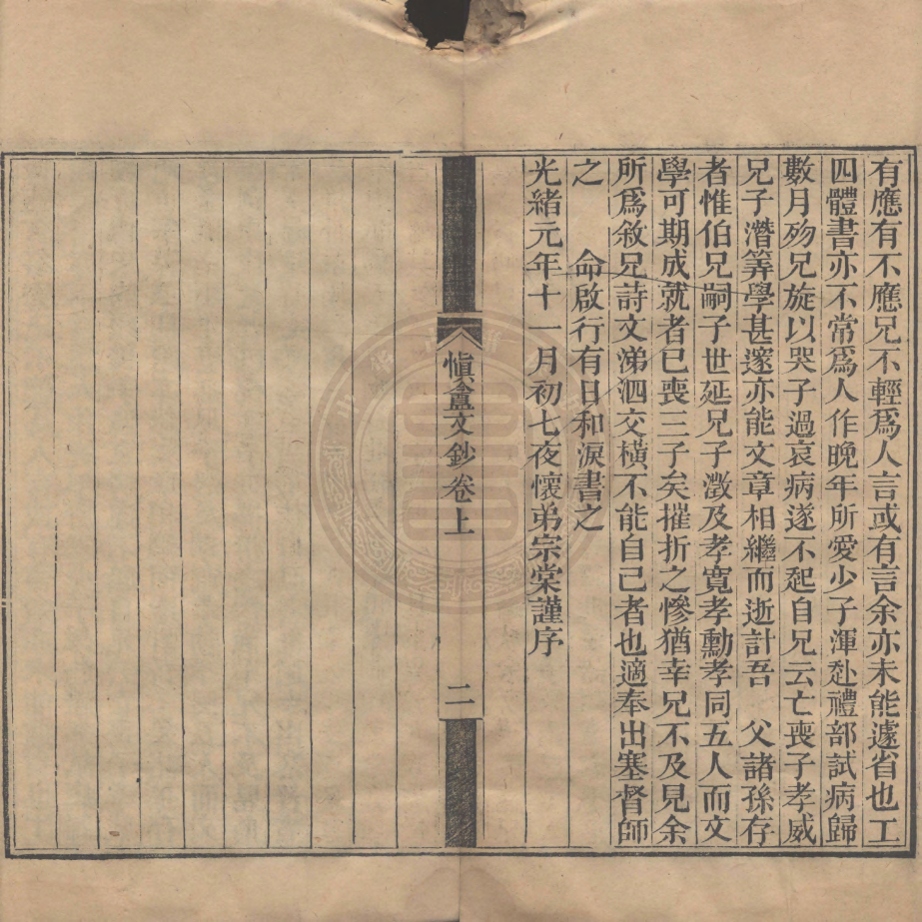 有應有不應兄不輕爲人言或有言余亦未能遽省也工
四體書亦不常爲人作晚年所愛少子渾赴禮部試病歸
數月歿兄旋以哭子過哀病遂不起自兄云亡喪子孝威
兄子潛筭學甚邃亦能文章相繼而逝計吾　父諸孫存
者惟伯兄嗣子世延兄子澂及孝寬孝勳孝同五人而文
學可期成就者已喪三子矣摧折之慘猶幸兄不及見余
所爲敘兄詩文涕泗交橫不能自已者也適奉出塞督師
之　命啟行有日和淚書之
光緒元年十一月初七夜懷弟宗棠謹序
愼盦文鈔卷上　二